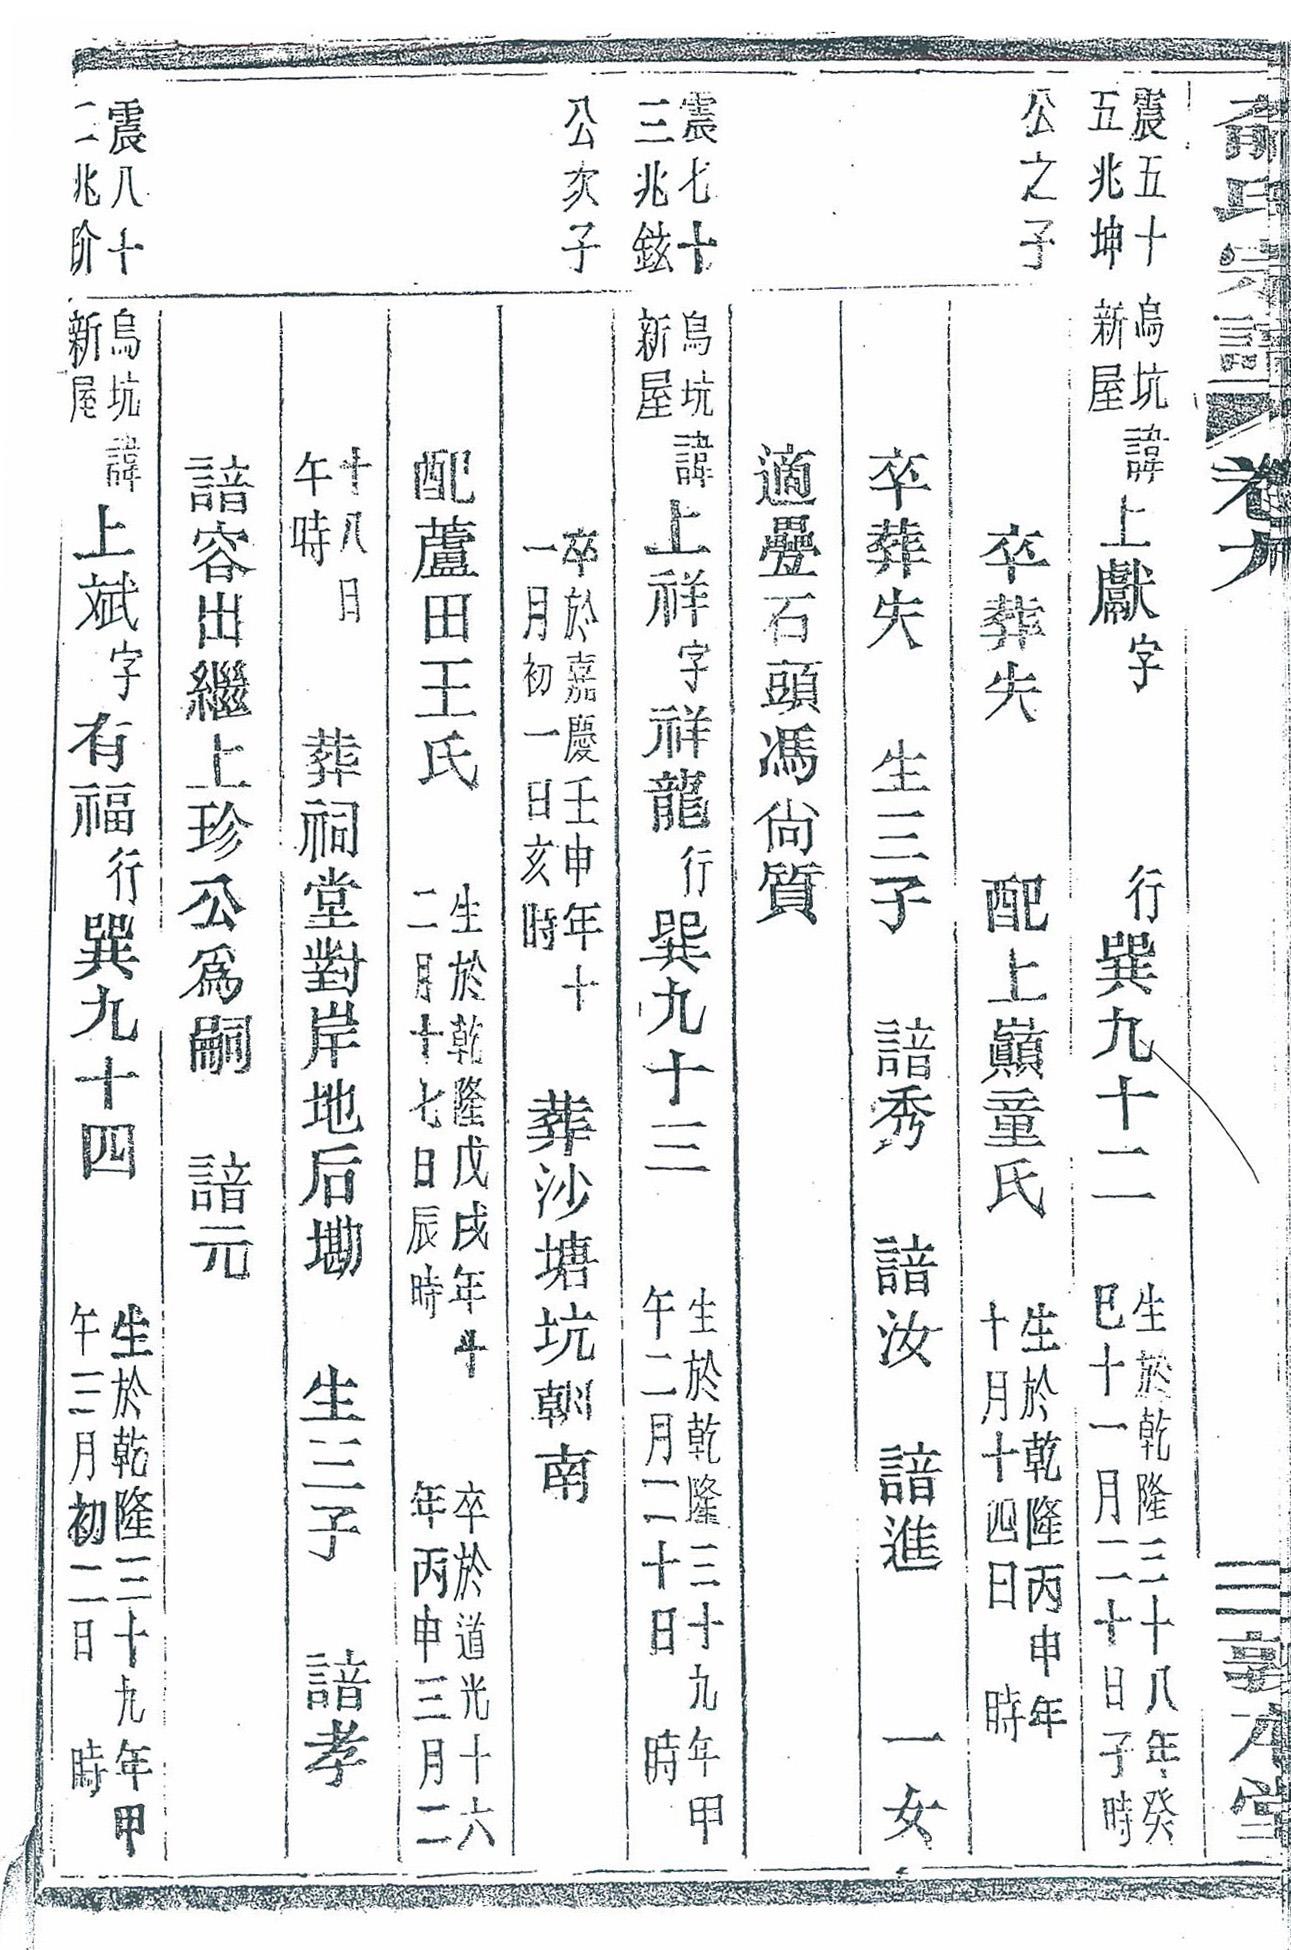 俞氏宗譜 卷九 三 敦本堂
震五十
五兆坤
公之子
烏坑
新屋
諱上獻字 行巽九十二
生於乾隆三十八年癸
巳十一月二十日子時
卒葬失 配上巔童氏
生於乾隆丙申年
十月十四日 時
卒葬失 生三子 諳秀 諳汝 諳進 一女
適疊石頭馮尙質
震七十
三兆鉉
公次子
烏坑
新屋
諱上祥字祥龍行巽九十三
生於乾隆三十九年甲
午二月二十日 時
卒於嘉慶壬申年十
一月初一日亥時
葬沙塘坑朝南
配蘆田王氏
生於乾隆戊戌年十
二月十七日辰時
卒於道光十六
年丙申三月二
十八日
午時
葬祠堂對岸地后墈 生三子 諳孝
諳容出繼上珍公爲嗣 諳元
震八十
二兆阶
烏坑
新屋
諱上斌字有福行巽九十四
生於乾隆三十九年甲
午三月初二日 時